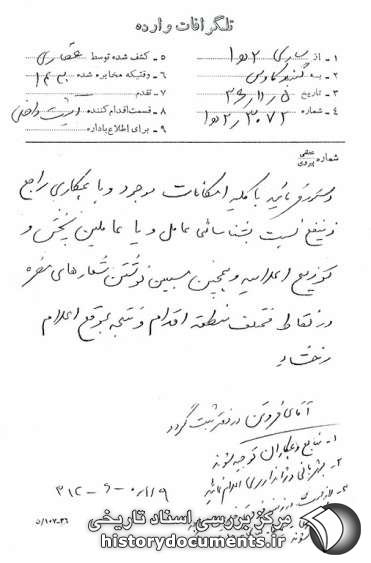 تلگرافات وارده
۱ - از ساری ۲ ه ۱
۲ - به گنبد کاوس
۳ - تاریخ ۵ / ۱۱ / ۳۶
۴ - شماره ۳۰۷۲ / ۲ ه ۱
۵ - کشف شده توسط
۶ - وقتیکه مخابره شده
۷ - تقدم
۸ - قسمت اقدام کننده امنیت داخلی
۹ - برای اطلاع باداره
شماره عطفی پیروی
دستور فرمائید با کلیه امکانات موجود و با همکاری مراجع
ذینفع نسبت بشناسائی عامل و یا عاملین پخش و
توزیع اعلامیه و همچنین مسببین نوشتن شعارهای مضره
در نقاط مختلف منطقه اقدام و نتیجه بموقع اعلام
آقای فروتن در دفتر ثبت گردد
۱- منابع و همکاران توجیه شوند
۲- شهربانی و ژاندارمری اعلام نمائید
۳۱۲-۶-۰/۱۱۹
۵/۱۰۷-۳۶
مرکز بررسی اسناد تاریخی
historydocuments.ir